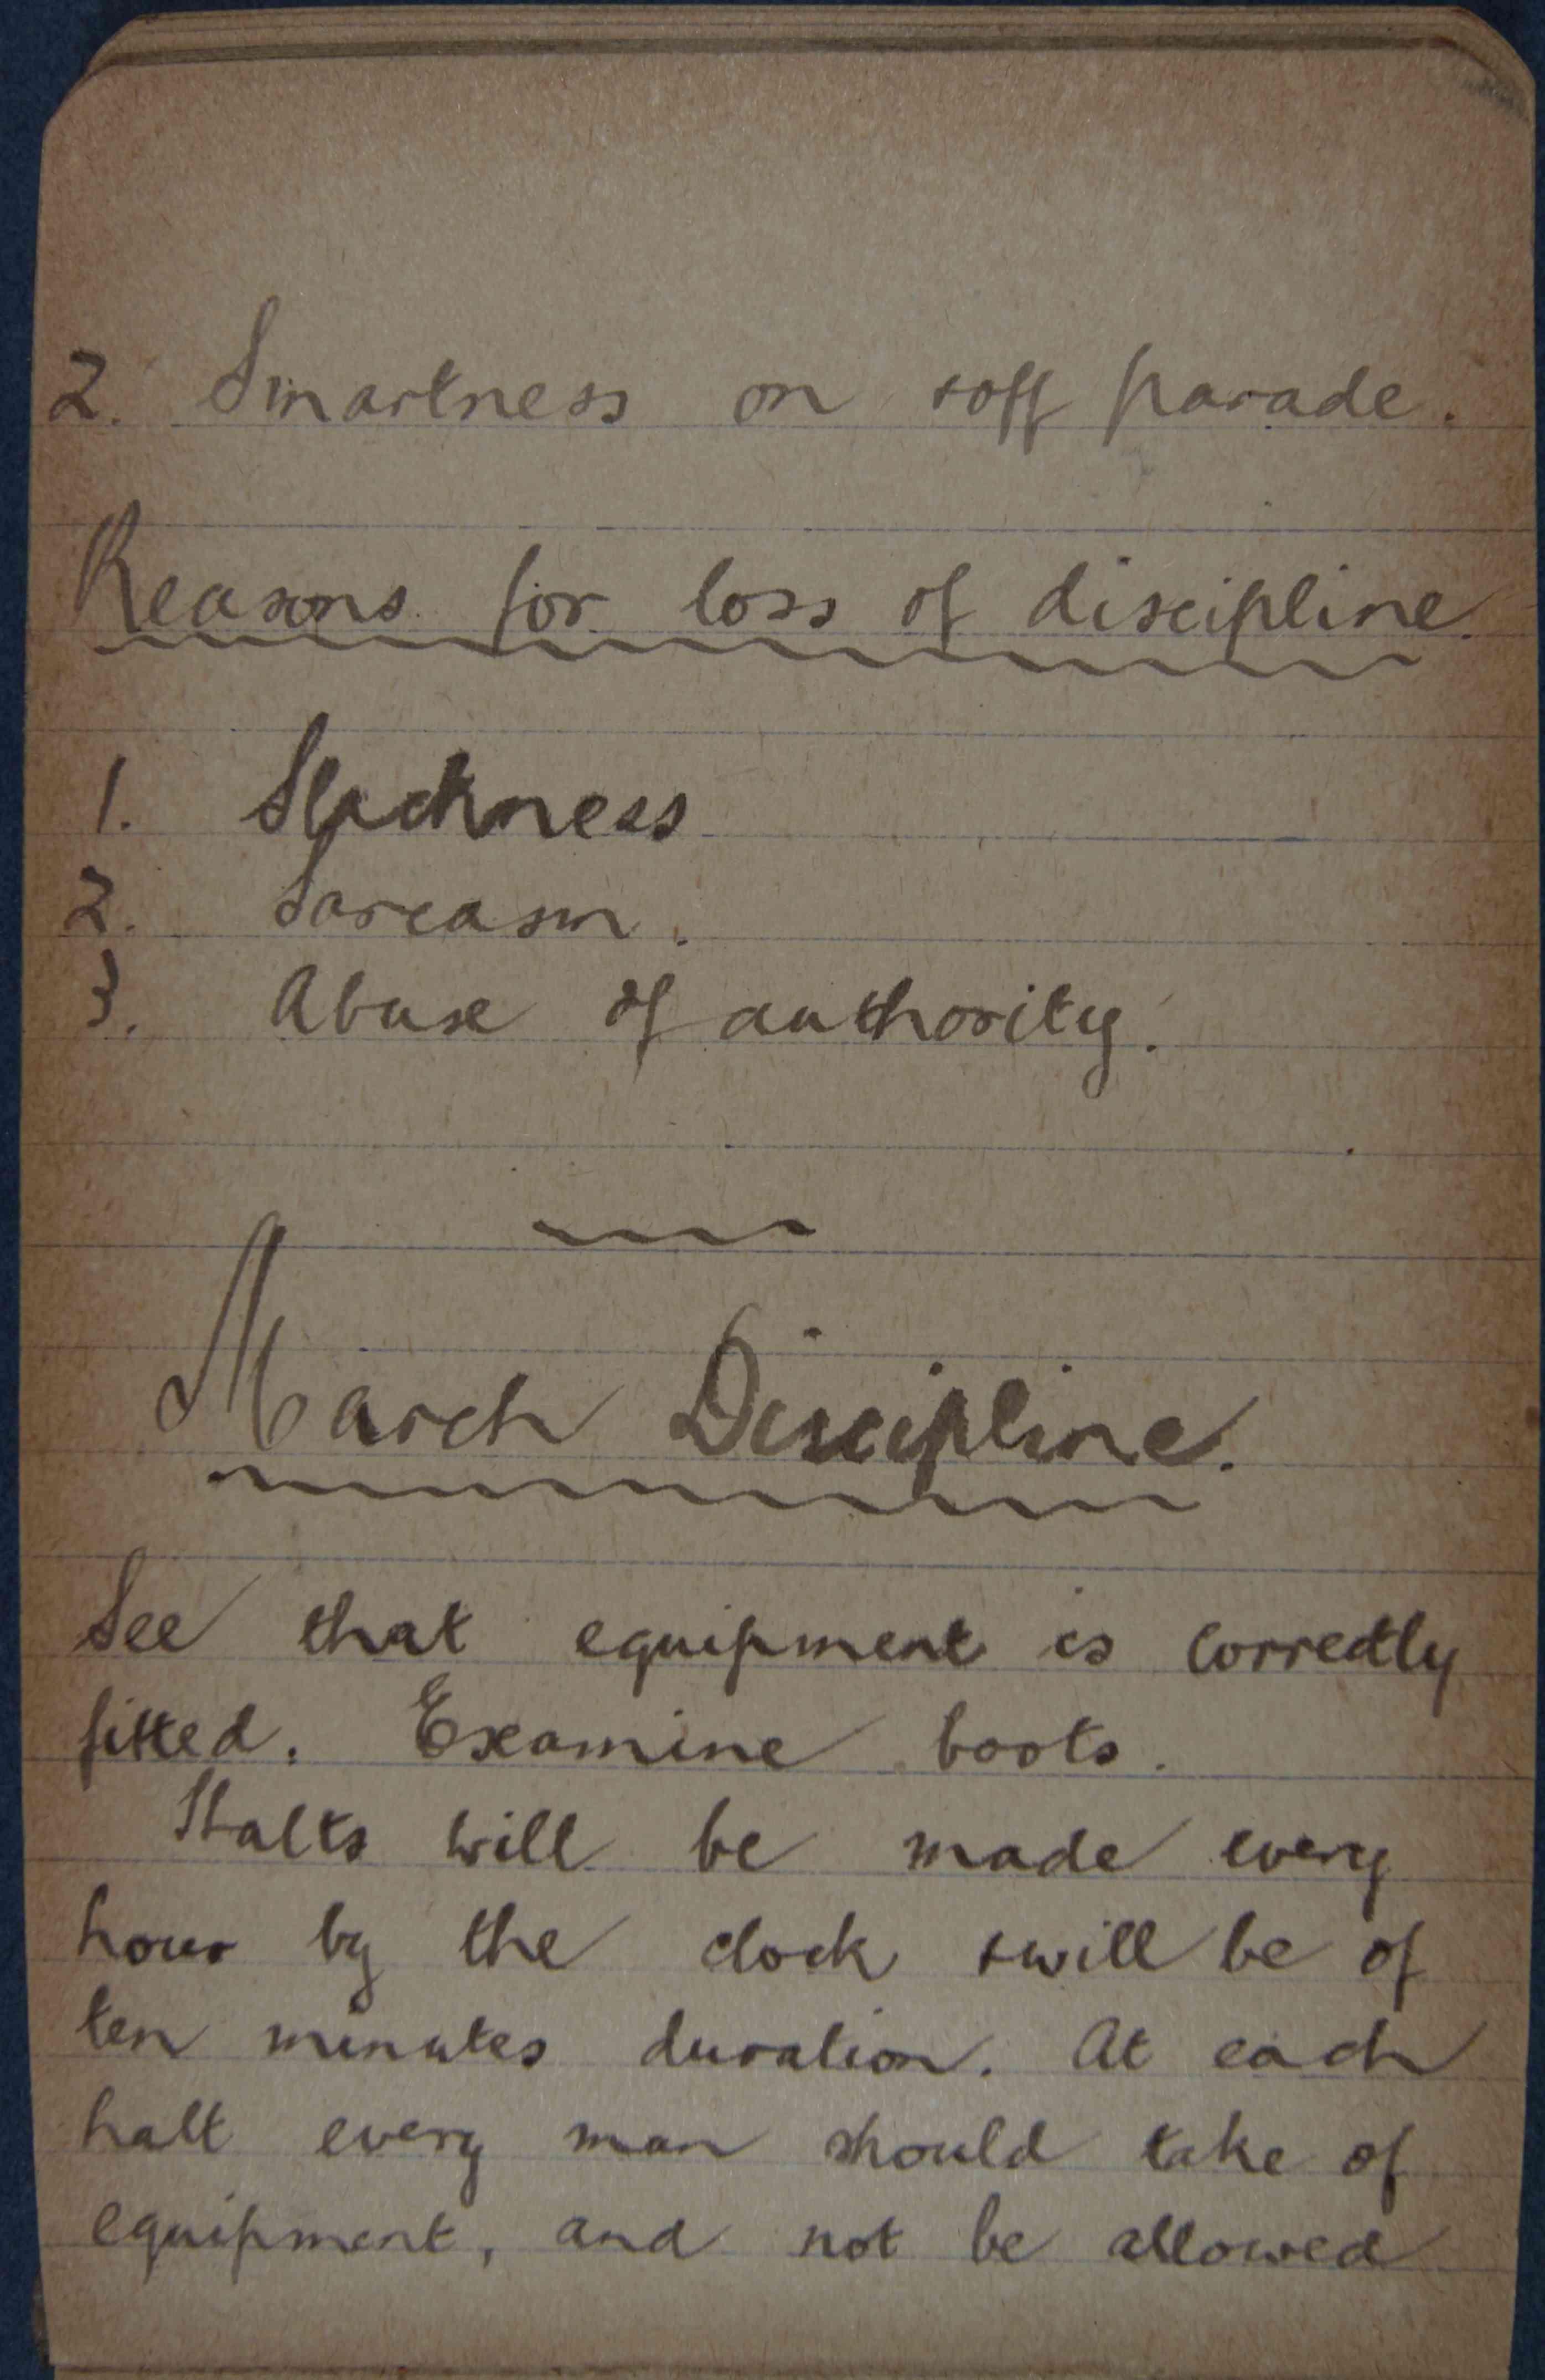 2. Smartness on & off parade.
Reasons for loss of discipline.
1. Slackness
2. Sarcasm.
3. Abuse of authority.
March Discipline.
See that equipment is correctly
fitted. Examine boots.
Halts will be made every
hour by the clock & will be of
ten minutes duration. At each
halt every man should take of
equipment, and not be allowed